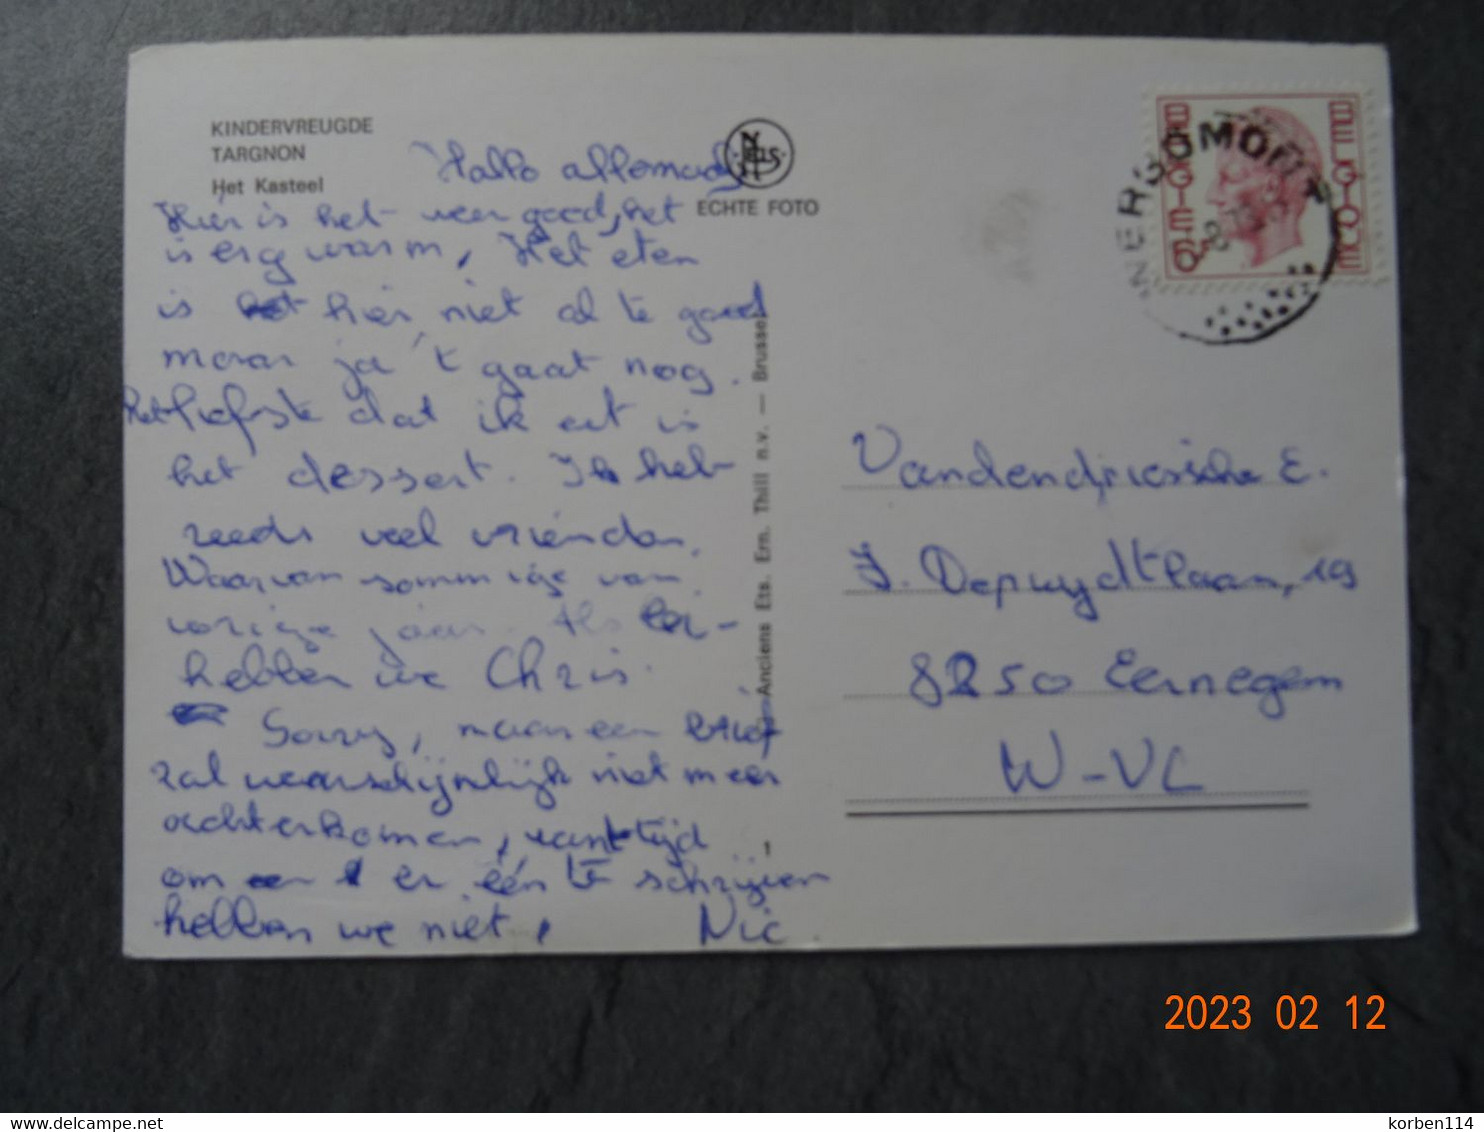 KINDERVREUGDE
TARGNON
Het Kasteel
Nels
ECHTE FOTO
Hallo allemaal,
Hier is het weer goed, het
is erg warm, Het eten
is hier niet al te goed
maar ja 't gaat nog.
het liefste dat ik eet is
het dessert. Ik heb
reeds veel vrienden.
Waarvan sommige van
vorige jaar. Als
hebben we Chris.
Sorry, maar een brief
zal waarschijnlijk niet meer
achterkomen, want tijd
om er één te schrijven
hebben we niet, Nic.
Anciens Ets. Ern. Thill n.v. — Brussel
1
BELGIË
BELGIQUE
WERBOMONT
Vandendriessche E.
J. Depuydtlaan, 19
8250 Eernegem
W-VL
2023 02 12
delcampe.net
korben114